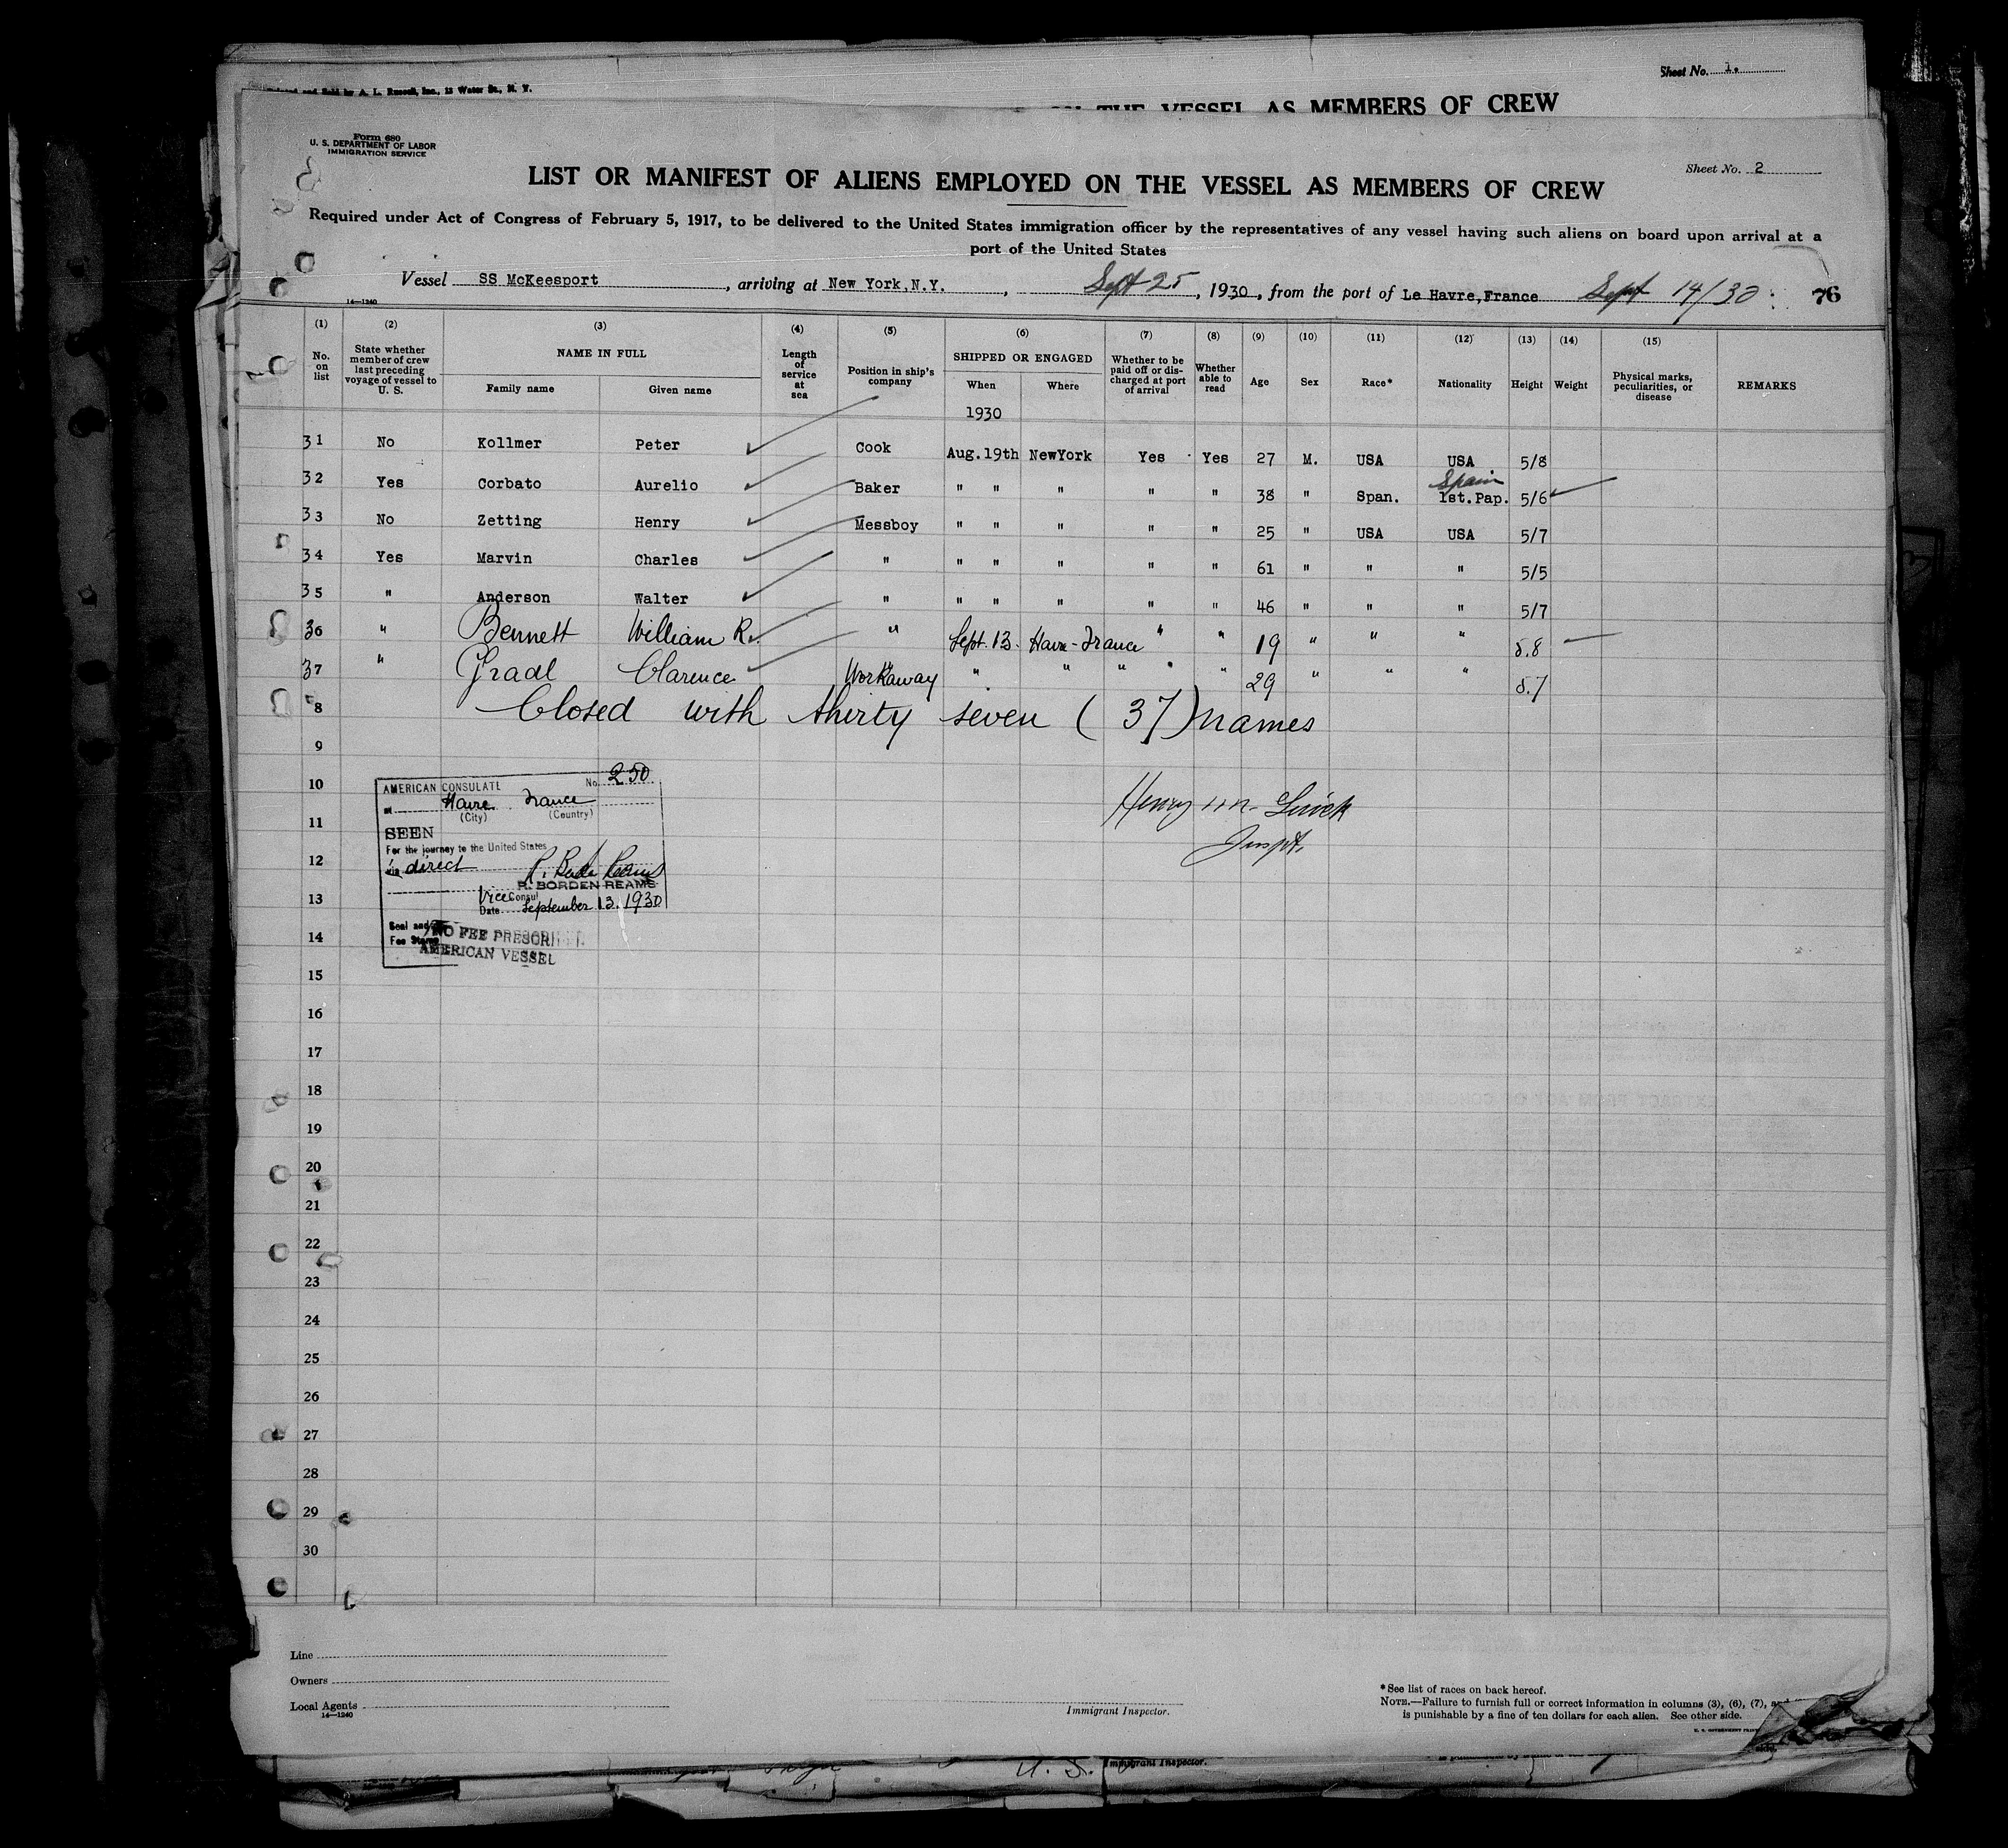 Sheet No. 1.
and sold by A. L. Russell, Inc., 13 Water St., N. Y.
THE VESSEL AS MEMBERS OF CREW
Form 680
U. S. DEPARTMENT OF LABOR
IMMIGRATION SERVICE
Sheet No. 2
LIST OR MANIFEST OF ALIENS EMPLOYED ON THE VESSEL AS MEMBERS OF CREW
Required under Act of Congress of February 5, 1917, to be delivered to the United States immigration officer by the representatives of any vessel having such aliens on board upon arrival at a
port of the United States
Vessel SS McKeesport, arriving at New York, N.Y., Sept 25, 1930, from the port of Le Havre, France Sept 14/30 76
14—1240
(1) (2) (3) (4) (5) (6) (7) (8) (9) (10) (11) (12) (13) (14) (15)
No. on list State whether member of crew last preceding voyage of vessel to U. S. NAME IN FULL Family name Given name Length of service at sea Position in ship's company SHIPPED OR ENGAGED When Where Whether to be paid off or discharged at port of arrival Whether able to read Age Sex Race* Nationality Height Weight Physical marks, peculiarities, or disease REMARKS
1930
31 No Kollmer Peter Cook Aug. 19th NewYork Yes Yes 27 M. USA USA 5/8
Spain
32 Yes Corbato Aurelio Baker " " " " " 38 " Span. 1st. Pap. 5/6
33 No Zetting Henry Messboy " " " " " 25 " USA USA 5/7
34 Yes Marvin Charles " " " " " " 61 " " " 5/5
35 " Anderson Walter " " " " " " 46 " " " 5/7
36 " Bennett William R. " Sept. 13. Havre-France " " 19 " " " 5.8
37 " Gradl Clarence Workaway " " " " " 29 " " " 5.7
8 Closed with thirty seven (37) names
9
10
11
12
13
14
15
16
17
18
19
20
21
22
23
24
25
26
27
28
29
30
AMERICAN CONSULATE No. 250
at Havre France
(City) (Country)
SEEN
For the journey to the United States
via direct
R. BORDEN REAMS
Vice Consul
Date September 13. 1930
Seal and
Fee Stamp
NO FEE PRESCRIBED
AMERICAN VESSEL
Henry
Inspt.
Line
Owners
Local Agents
14—1240
Immigrant Inspector.
*See list of races on back hereof.
NOTE.—Failure to furnish full or correct information in columns (3), (6), (7), and
is punishable by a fine of ten dollars for each alien. See other side.
U. S.
Immigrant Inspector.